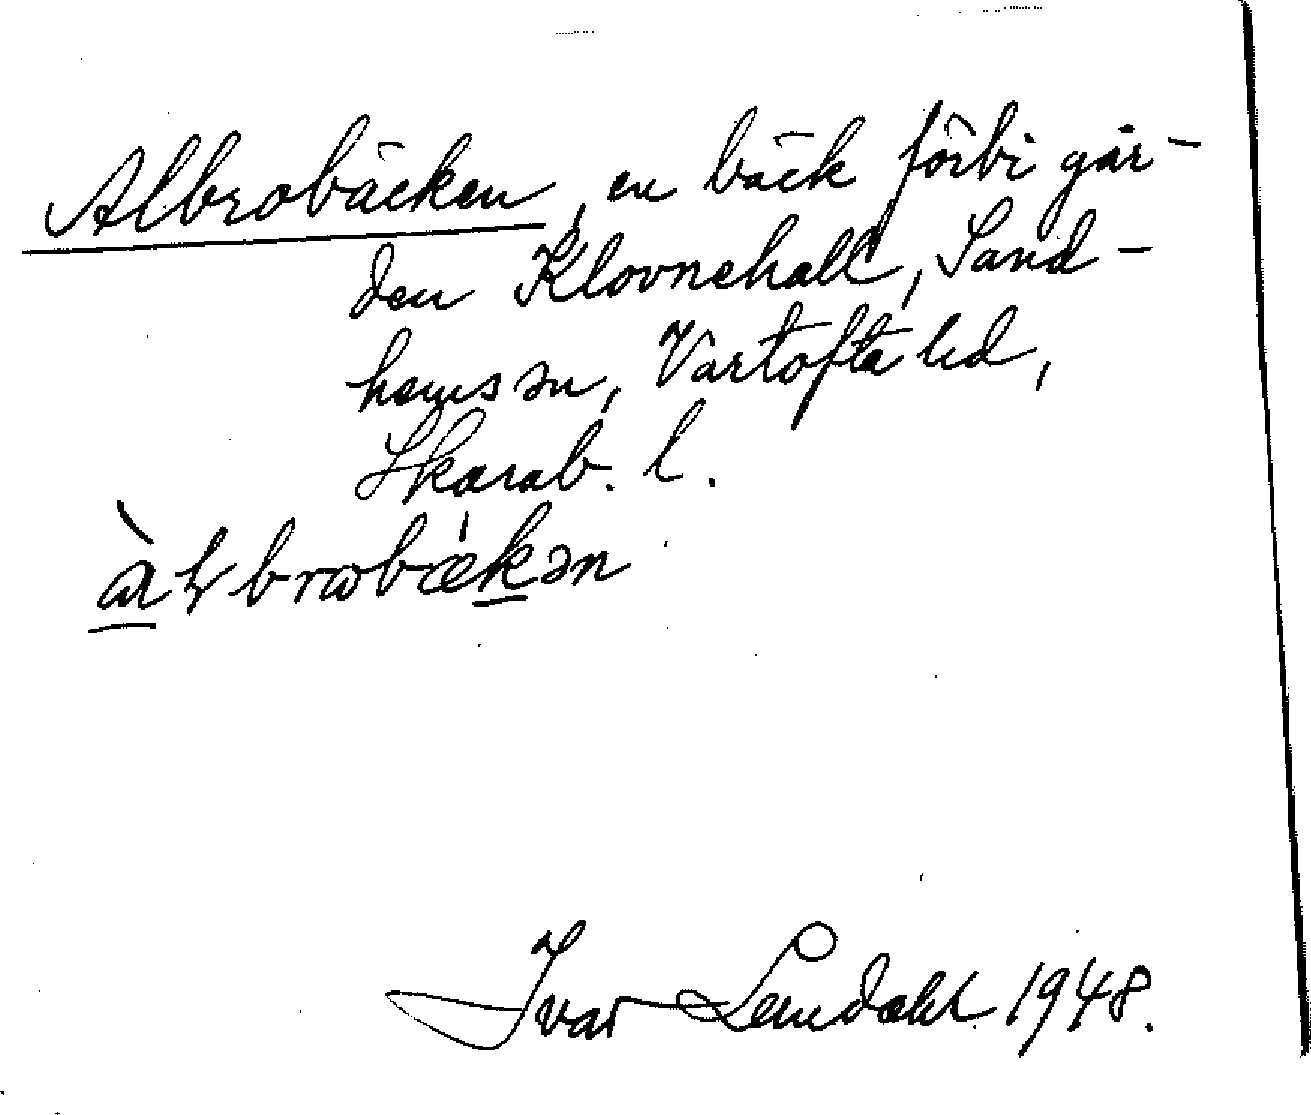 Albrobäcken, en bäck förbi går-
den Klovnehall, Sand-
hems sn, Vartofta hd,
Skarab. l.
àɫbrωbækən
Ivar Lundahl 1948.